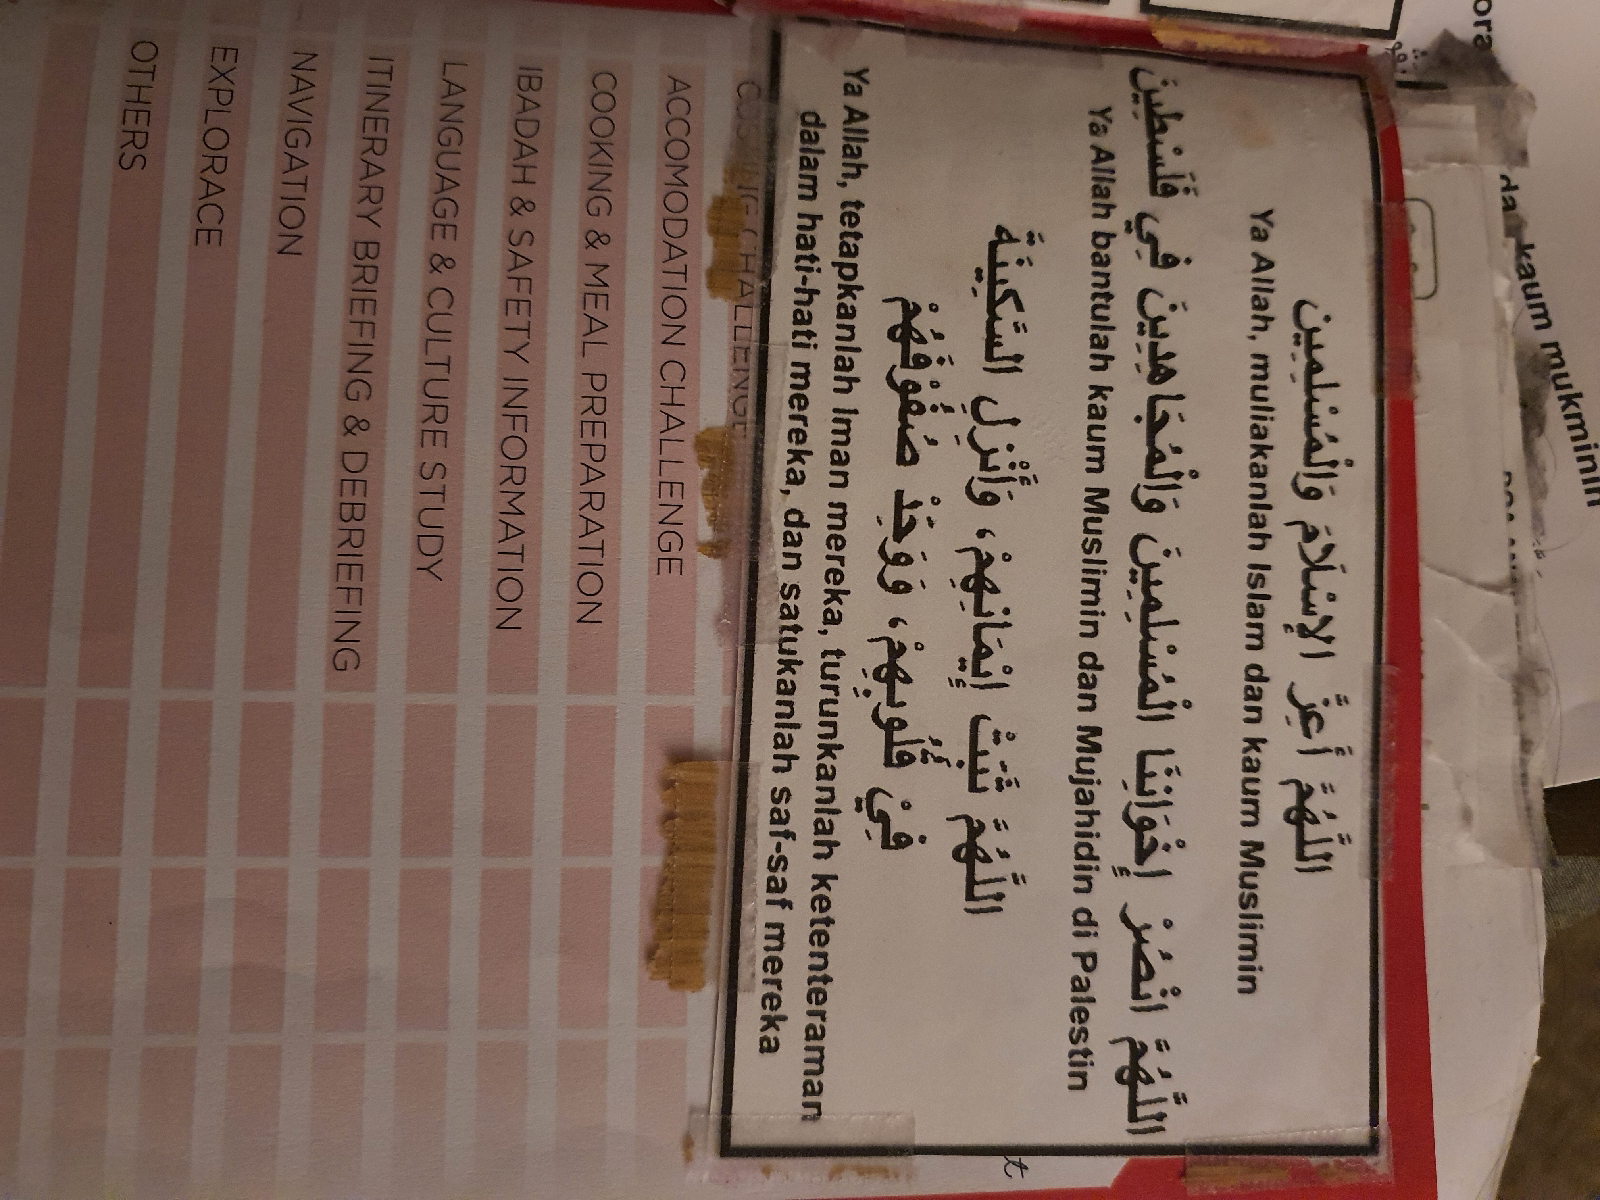 ora
da kaum mukminin
اللَّهُمَّ أَعِزَّ الإِسْلَامَ وَالْمُسْلِمِين
Ya Allah, muliakanlah Islam dan kaum Muslimin
اللَّهُمَّ انْصُرْ إِخْوَانِنَا الْمُسْلِمِينَ وَالْمُجَاهِدِينَ فِي فَلَسْطِينَ
Ya Allah bantulah kaum Muslimin dan Mujahidin di Palestin
اللَّهُمَّ ثَبِّتْ إِيْمَانِهِمْ، وَأَنْزِلِ السَّكِيْنَةَ
فِيْ قُلُوبِهِمْ، وَوَحِّدْ صُفُوْفَهُمْ
Ya Allah, tetapkanlah Iman mereka, turunkanlah ketenteraman
dalam hati-hati mereka, dan satukanlah saf-saf mereka
t
CHALLENGE
ACCOMODATION CHALLENGE
COOKING & MEAL PREPARATION
IBADAH & SAFETY INFORMATION
LANGUAGE & CULTURE STUDY
ITINERARY BRIEFING & DEBRIEFING
NAVIGATION
EXPLORACE
OTHERS